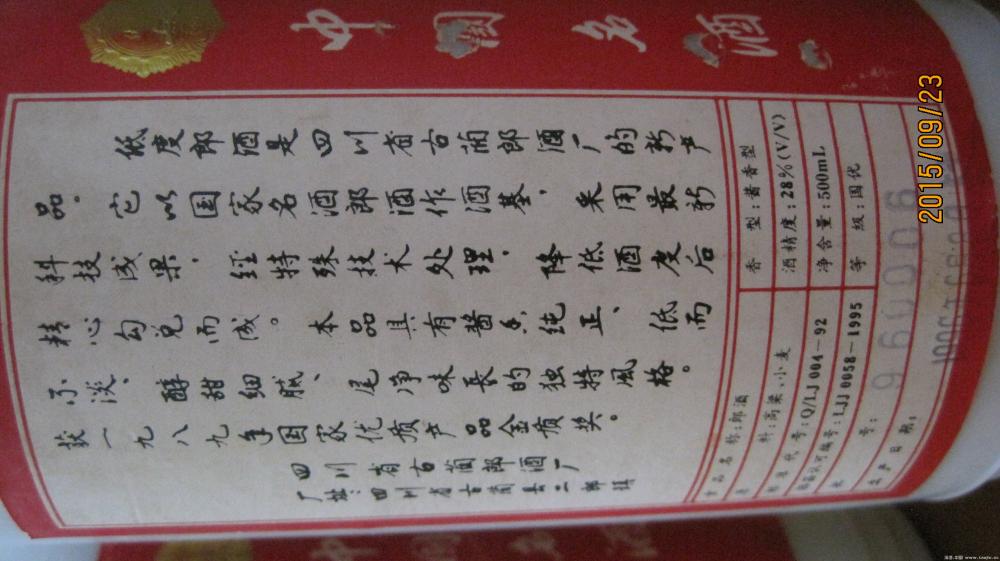 中国名酒
低度郎酒是四川省古蔺郎酒厂的新产
品。它以国家名酒郎酒作酒基,采用最新
科技成果,经特殊技术处理,降低酒度后
精心勾兑而成。本品具有酱香纯正、低而
不淡、醇甜细腻、尾净味長的独特風格。
获一九八九年国家优质产品金质奖。
四川省古蔺郎酒厂
厂址:四川省古蔺县二郎镇
食品名称:郎酒
原料:高粱、小麦
标准代号:Q/LJ 004-92
认可编号:LJJ 0058-1995
批号:960006
生产日期:
香型:酱香型
酒精度:28%(V/V)
净含量:500mL
等级:国优
2015/09/23